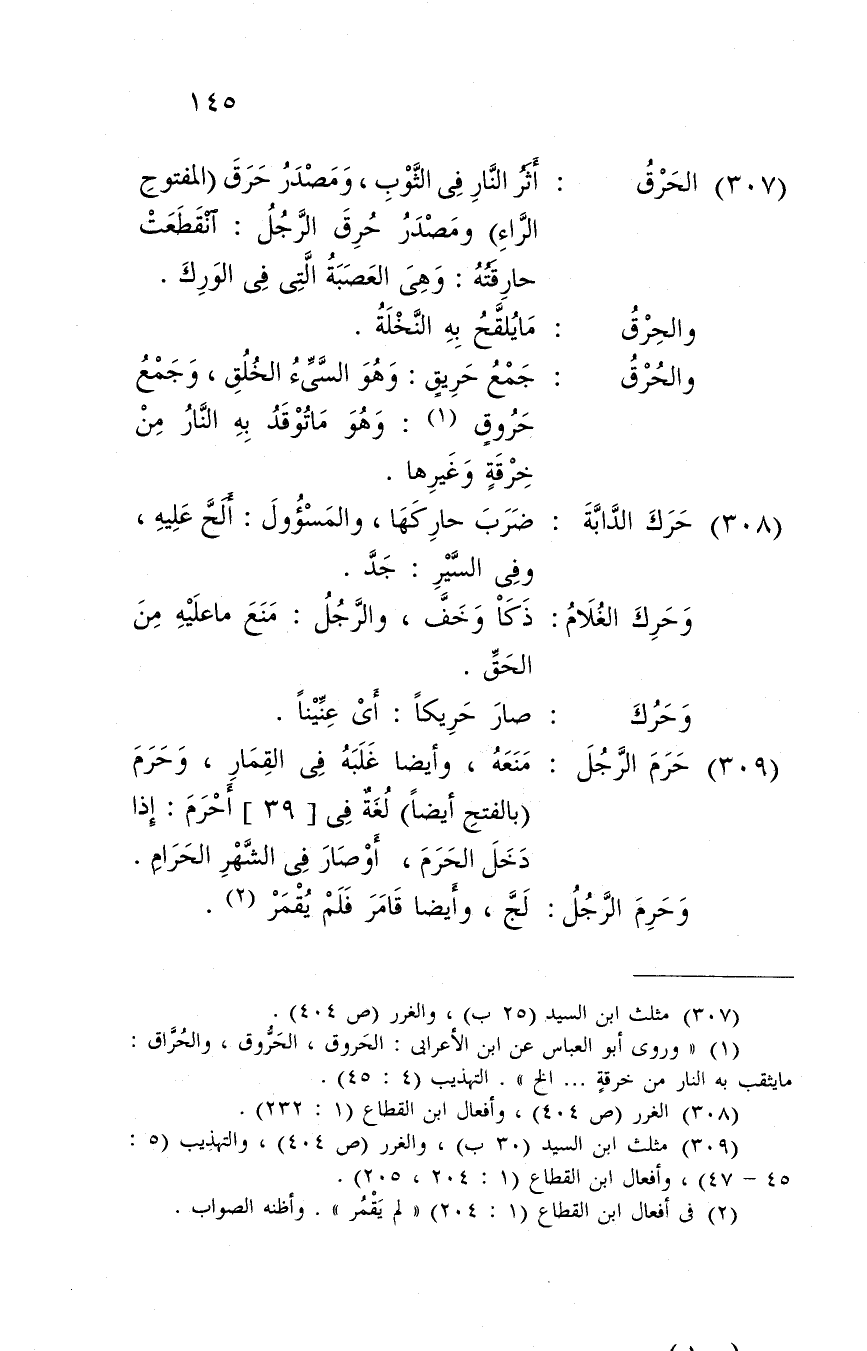 ١٤٥
(٣٠٧) الحَرْقُ : أَثَرُ النَّارِ فِى الثَّوْبِ ، وَمَصْدَرُ حَرَقَ (المفتوحِ
الرَّاءِ) ومَصْدَرُ حُرِقَ الرَّجُلُ : آنْقَطَعَتْ
حارِقَتُهُ : وَهِىَ العَصَبَةُ الَّتِى فِى الوَرِكَ .
والحِرْقُ : مَايُلقَّحُ بِهِ النَّخْلَةُ .
والحُرْقُ : جَمْعُ حَرِيقٍ : وَهُوَ السَّىِّءُ الخُلُقِ ، وَجَمْعُ
حَرُوقٍ (١) : وَهُوَ مَاتُوْقَدُ بِهِ النَّارُ مِنْ
خِرْقَةٍ وَغَيرِها .
(٣٠٨) حَرَكَ الدَّابَّةَ : ضَرَبَ حارِكَهَا ، والمَسْؤُولَ : أَلَحَّ عَلِيهِ ،
وفِى السَّيْرِ : جَدَّ .
وَحَرِكَ الغُلَامُ : ذَكَاْ وَخَفَّ ، والرَّجُلُ : مَنَعَ ماعلَيْهِ مِنَ
الحَقِّ .
وَحَرُكَ : صارَ حَرِيكاً : أَىْ عِنِّيْناً .
(٣٠٩) حَرَمَ الرَّجُلَ : مَنَعَهُ ، وأيضا غَلَبَهُ فِى القِمَارِ ، وَحَرَمَ
(بالفتحِ أيضاً) لُغَةٌ فِى [ ٣٩ ] أَحْرَمَ : إِذا
دَخَلَ الحَرَمَ ، أَوْصَارَ فِى الشَّهْرِ الحَرَامِ .
وَحَرِمَ الرَّجُلُ : لَجَّ ، وأَيضا قَامَرَ فَلَمْ يُقْمَرْ (٢) .
(٣٠٧) مثلث ابن السيد (٢٥ ب) ، والغرر (ص ٤٠٤) .
(١) « وروى أبو العباس عن ابن الأعرابى : الحَروق ، الحَرُّوق ، والحُرَّاق :
مايثقب به النار من خرقةٍ ... الخ » . التهذيب (٤ : ٤٥) .
(٣٠٨) الغرر (ص ٤٠٤) ، وأفعال ابن القطاع (١ : ٢٣٢) .
(٣٠٩) مثلث ابن السيد (٣٠ ب) ، والغرر (ص ٤٠٤) ، والتهذيب (٥ :
٤٥ – ٤٧) ، وأفعال ابن القطاع (١ : ٢٠٤ ، ٢٠٥) .
(٢) فى أفعال ابن القطاع (١ : ٢٠٤) « لم يَقْمُر » . وأظنه الصواب .